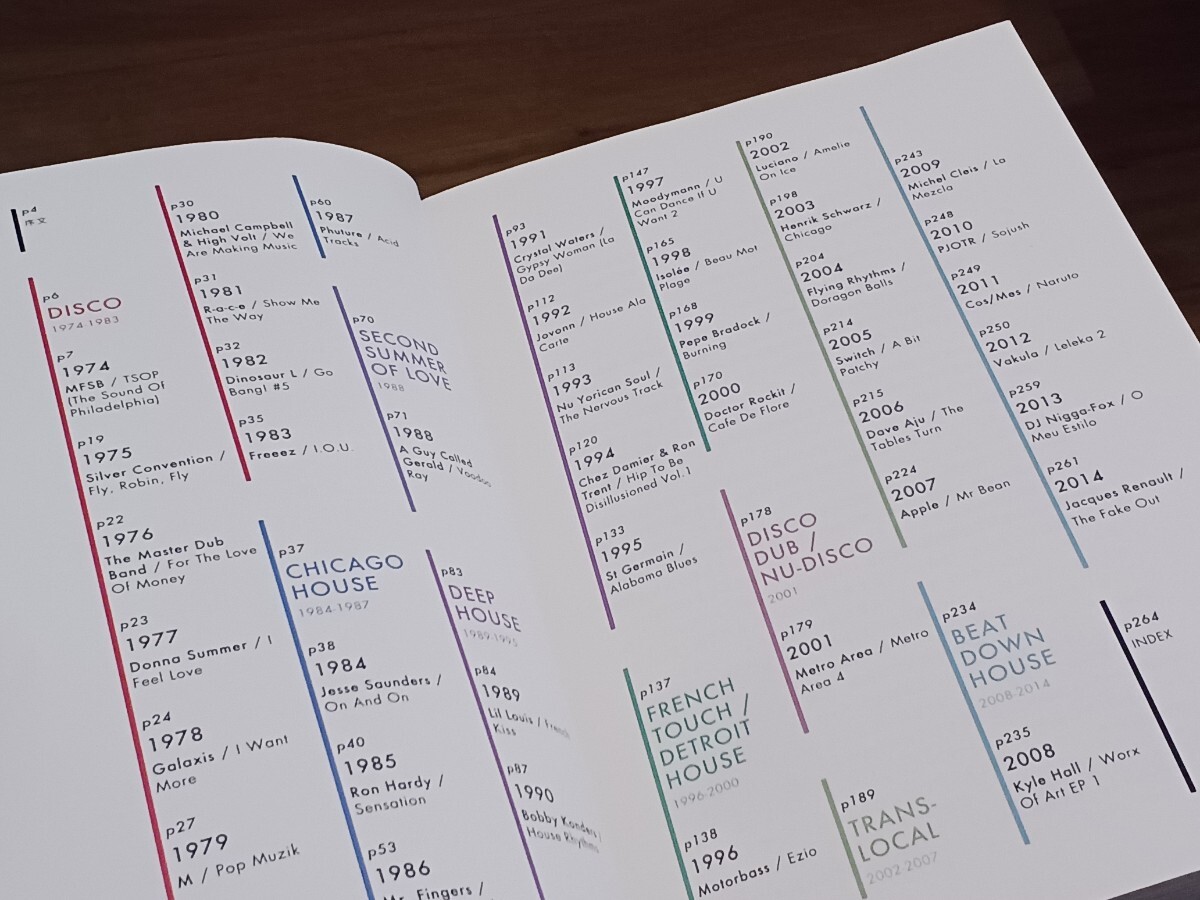 p4
序文
p6
DISCO
1974-1983
p7
1974
MFSB / TSOP
(The Sound Of
Philadelphia)
p19
1975
Silver Convention /
Fly, Robin, Fly
p22
1976
The Master Dub
Band / For The Love
Of Money
p23
1977
Donna Summer / I
Feel Love
p24
1978
Galaxis / I Want
More
p27
1979
M / Pop Muzik
p30
1980
Michael Campbell
& High Volt / We
Are Making Music
p31
1981
R-a-c-e / Show Me
The Way
p32
1982
Dinosaur L / Go
Bang! #5
p35
1983
Freeez / I.O.U.
p37
CHICAGO
HOUSE
1984-1987
p38
1984
Jesse Saunders /
On And On
p40
1985
Ron Hardy /
Sensation
p53
1986
Mr. Fingers /
p60
1987
Phuture / Acid
Tracks
p70
SECOND
SUMMER
OF LOVE
1988
p71
1988
A Guy Called
Gerald / Voodoo
Ray
p83
DEEP
HOUSE
1989-1995
p84
1989
Lil Louis / French
Kiss
p87
1990
Bobby Konders /
House Rhythms
p93
1991
Crystal Waters /
Gypsy Woman (La
Da Dee)
p112
1992
Jovonn / House Ala
Carte
p113
1993
Nu Yorican Soul /
The Nervous Track
p120
1994
Chez Damier & Ron
Trent / Hip To Be
Disillusioned Vol.1
p133
1995
St Germain /
Alabama Blues
p137
FRENCH
TOUCH /
DETROIT
HOUSE
1996-2000
p138
1996
Motorbass / Ezio
p147
1997
Moodymann / U
Can Dance If U
Want 2
p165
1998
Isolée / Beau Mot
Plage
p168
1999
Pepe Bradock /
Burning
p170
2000
Doctor Rockit /
Cafe De Flore
p178
DISCO
DUB /
NU-DISCO
2001
p179
2001
Metro Area / Metro
Area 4
p189
TRANS-
LOCAL
2002-2007
p190
2002
Luciano / Amelie
On Ice
p198
2003
Henrik Schwarz /
Chicago
p204
2004
Flying Rhythms /
Doragon Balls
p214
2005
Switch / A Bit
Patchy
p215
2006
Dave Aju / The
Tables Turn
p224
2007
Apple / Mr Bean
p234
BEAT
DOWN
HOUSE
2008-2014
p235
2008
Kyle Hall / Worx
Of Art EP 1
p243
2009
Michel Cleis / La
Mezcla
p248
2010
PJOTR / Sojush
p249
2011
Cos/Mes / Naruto
p250
2012
Vakula / Leleka 2
p259
2013
DJ Nigga-Fox / O
Meu Estilo
p261
2014
Jacques Renault /
The Fake Out
p264
INDEX